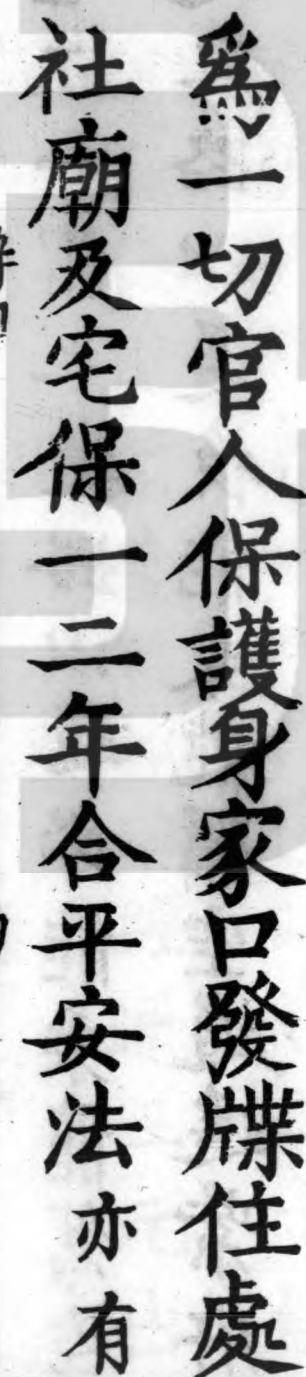 爲一切官人保護身家口發牒住處
社廟及宅保一二年合平安法亦有